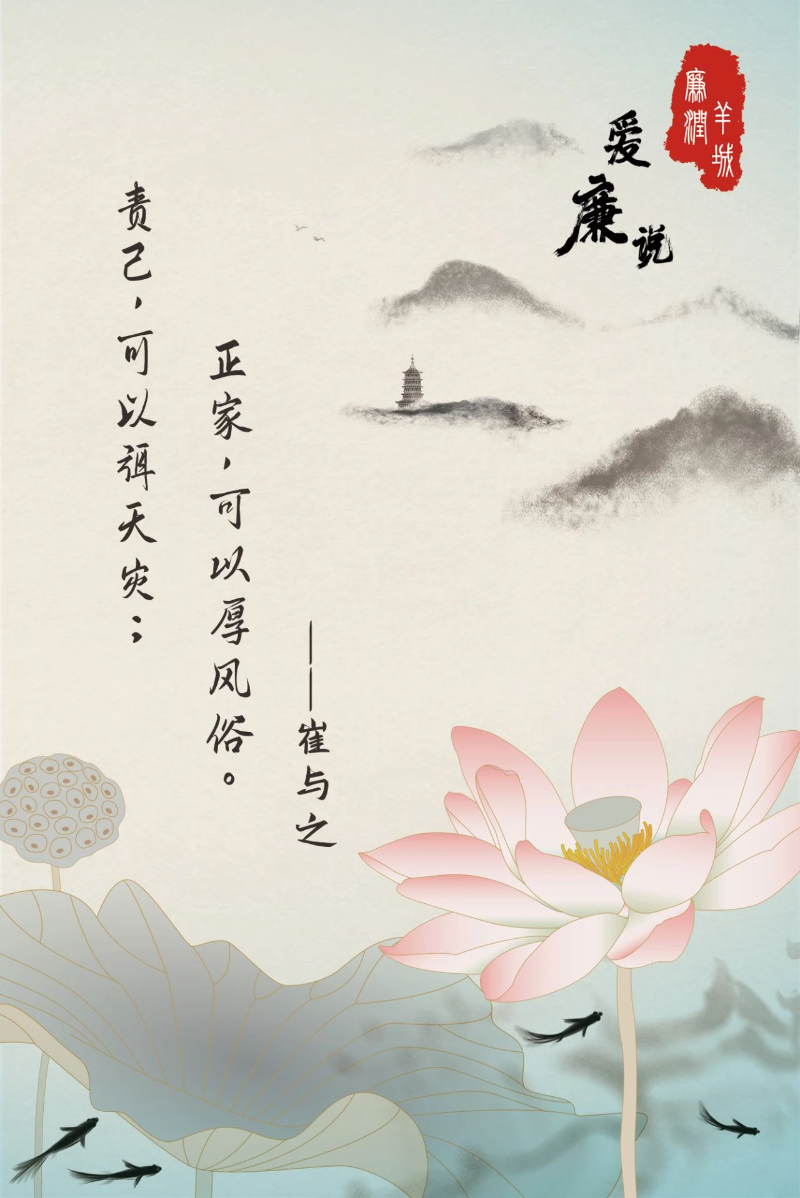 廉潤
羊城
爱廉说
责己，可以弭天灾；
正家，可以厚风俗。
——崔与之